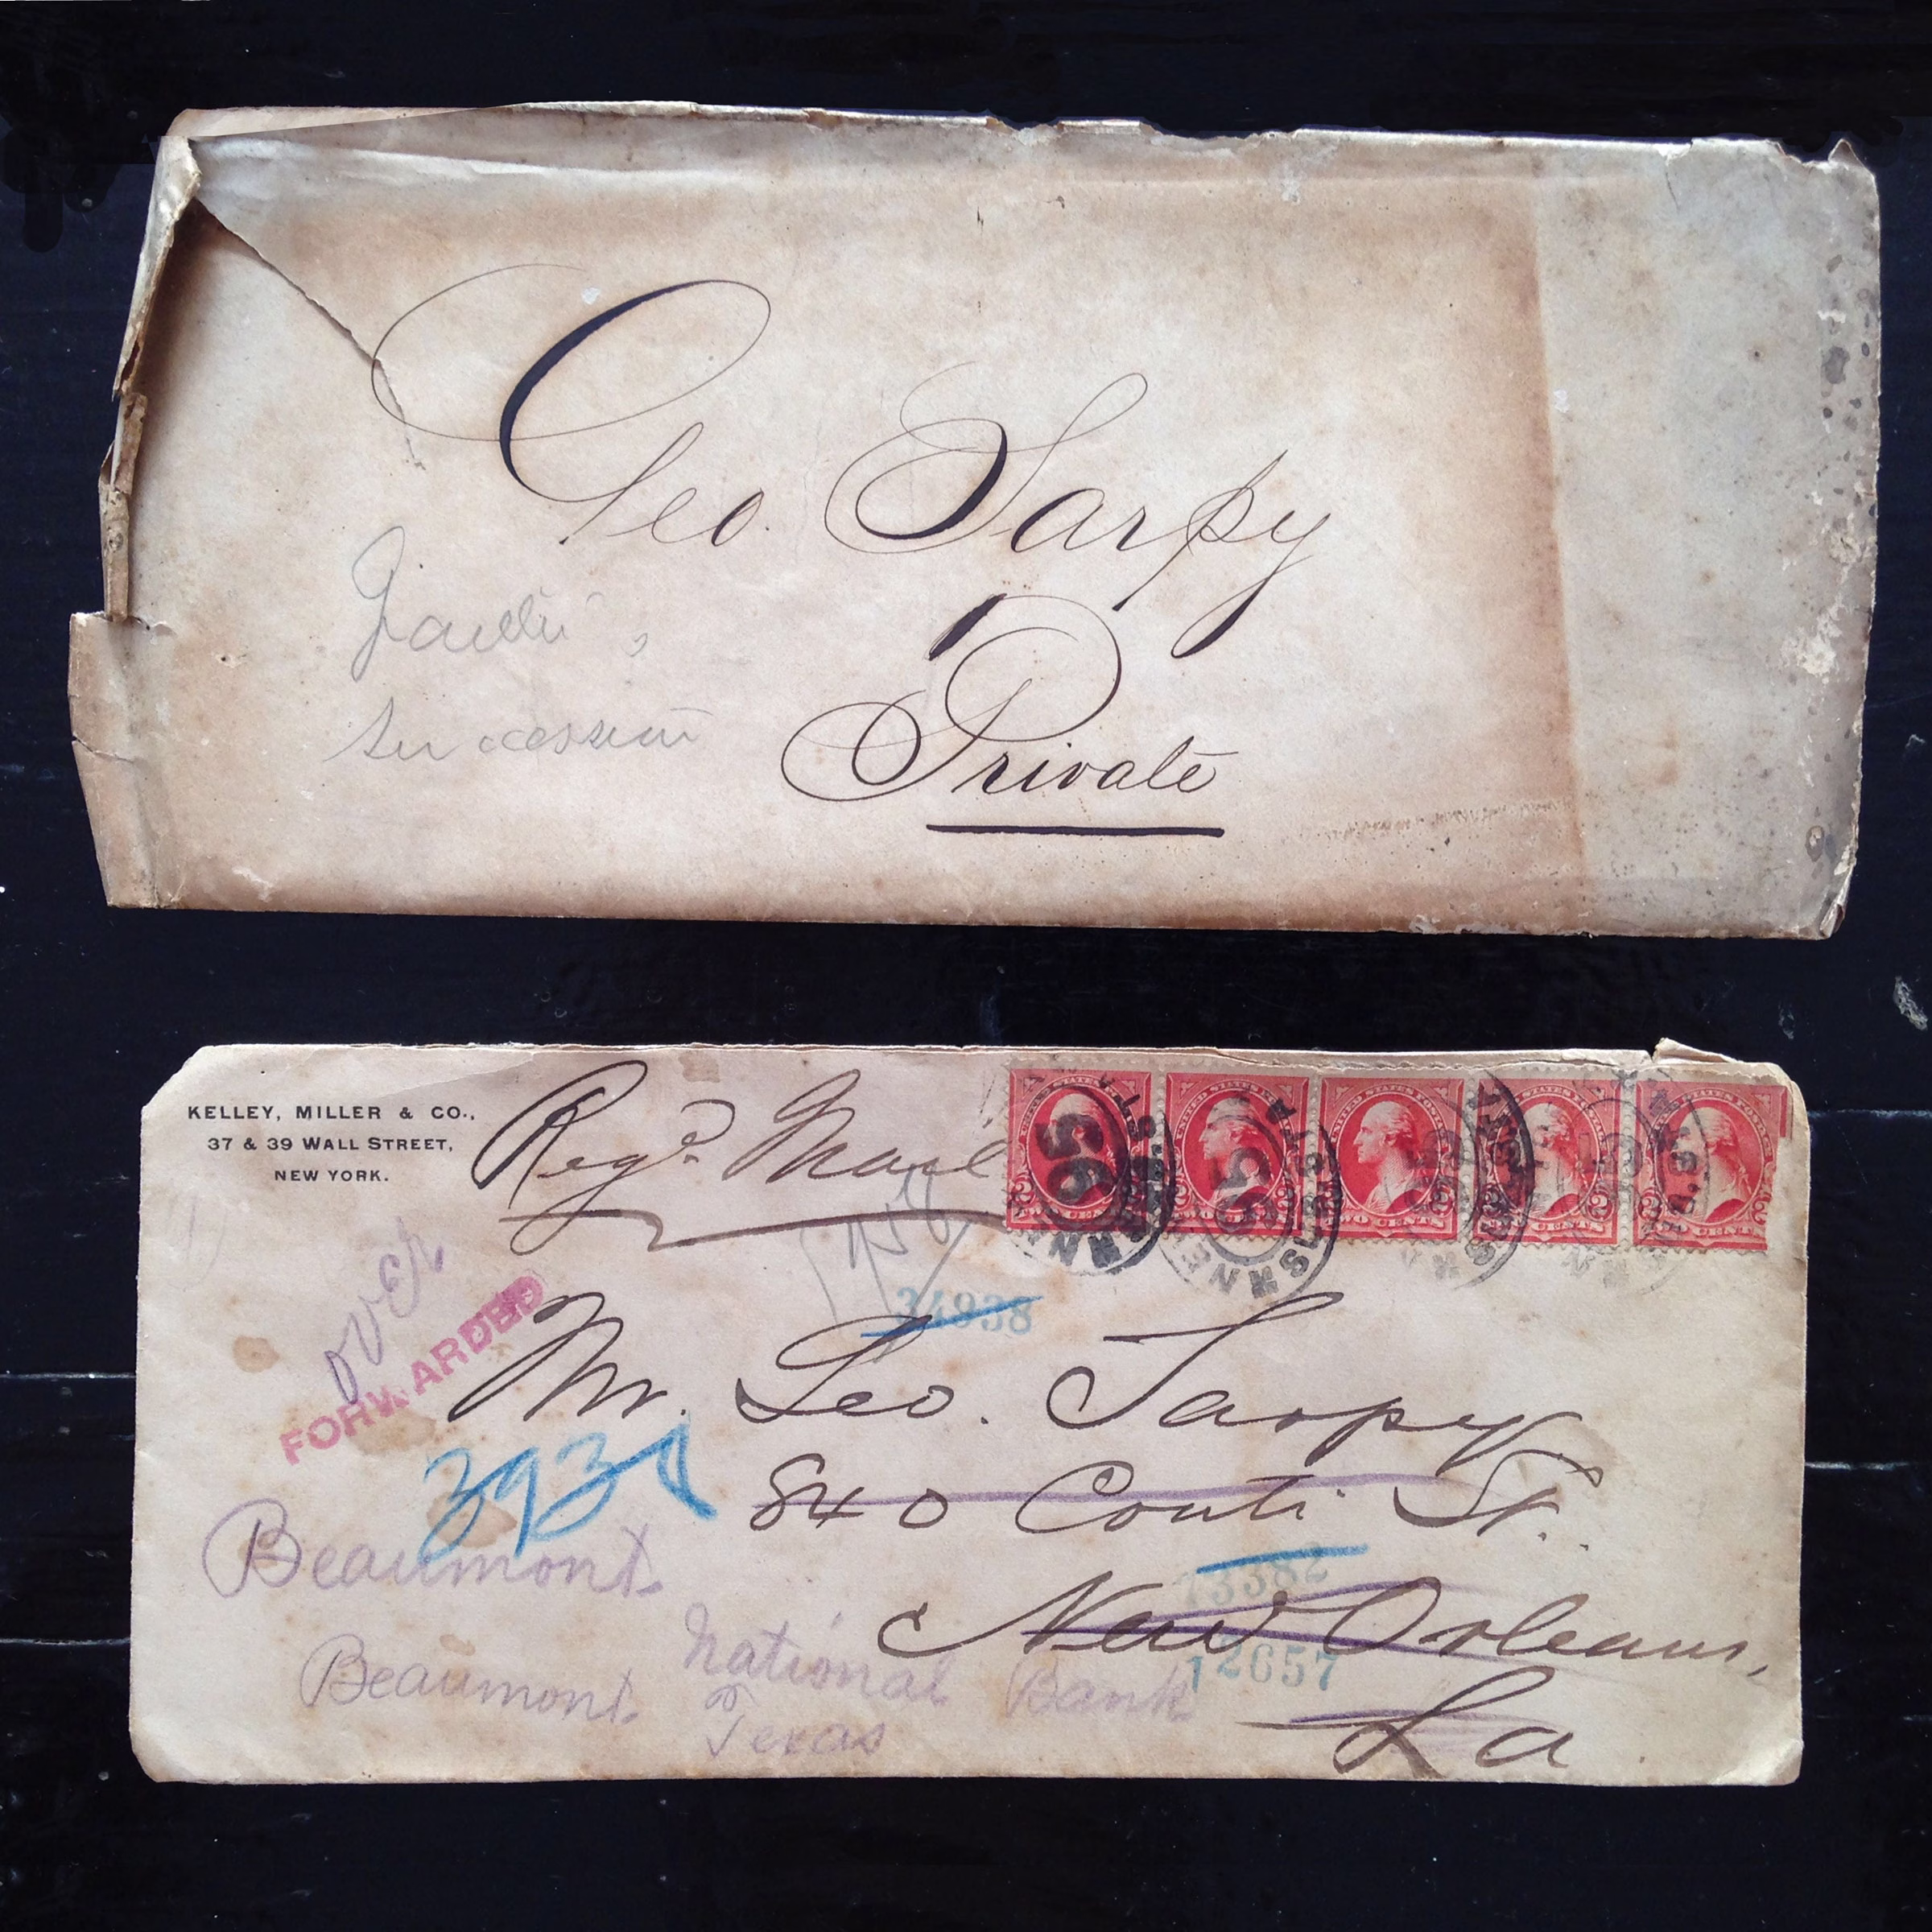 Geo. Sarpy
Private
succession
KELLEY, MILLER & CO.,
37 & 39 WALL STREET,
NEW YORK.
Regd Mail
over
FORWARDED
34938
Mr. Geo. Sarpy
840 Conti St.
New Orleans,
La
73382
12657
Beaumont
Beaumont National Bank
Texas
TWO CENTS